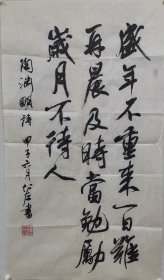 盛年不重来一日難
再晨及時當勉勵
歲月不待人
陶渊明詩 甲子六月
書